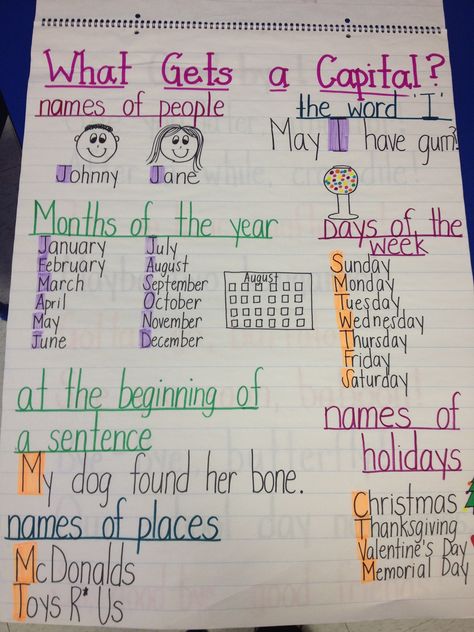 What Gets a Capital?
names of people
Johnny Jane
the word 'I'
May I have gum?
Months of the year
January
February
March
April
May
June
July
August
September
October
November
December
August
Days of the
week
Sunday
Monday
Tuesday
Wednesday
Thursday
Friday
Saturday
at the beginning of
a sentence
My dog found her bone.
names of places
McDonalds
Toys R* Us
names of
holidays
Christmas
Thanksgiving
Valentine's Day
Memorial Day